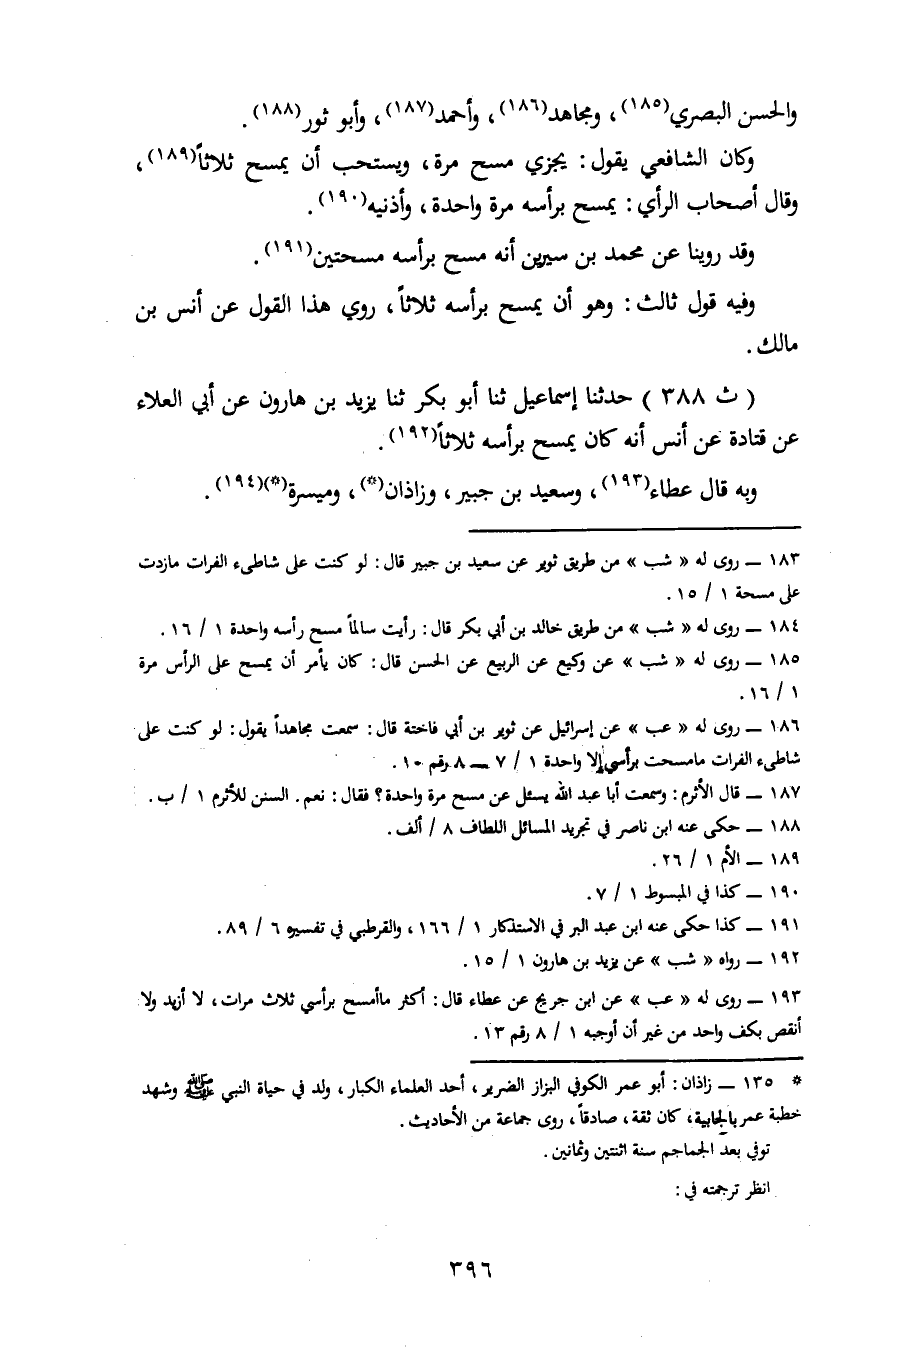 والحسن البصري(١٨٥)، ومجاهد(١٨٦)، وأحمد(١٨٧)، وأبو ثور(١٨٨).
وكان الشافعي يقول: يجزي مسح مرة، ويستحب أن يمسح ثلاثاً(١٨٩)،
وقال أصحاب الرأي: يمسح برأسه مرة واحدة، وأذنيه(١٩٠).
وقد روينا عن محمد بن سيرين أنه مسح برأسه مسحتين(١٩١).
وفيه قول ثالث: وهو أن يمسح برأسه ثلاثاً، روي هذا القول عن أنس بن
مالك.
( ث ٣٨٨ ) حدثنا إسماعيل ثنا أبو بكر ثنا يزيد بن هارون عن أبي العلاء
عن قتادة عن أنس أنه كان يمسح برأسه ثلاثاً(١٩٢).
وبه قال عطاء(١٩٣)، وسعيد بن جبير، وزاذان(*)، وميسرة(*)(١٩٤).
١٨٣ ــ روى له « شب » من طريق ثوير عن سعيد بن جبير قال: لو كنت على شاطىء الفرات مازدت
على مسحة ١ / ١٥.
١٨٤ ــ روى له « شب » من طريق خالد بن أبي بكر قال: رأيت سالماً مسح رأسه واحدة ١ / ١٦.
١٨٥ ــ روى له « شب » عن وكيع عن الربيع عن الحسن قال: كان يأمر أن يمسح على الرأس مرة
١ / ١٦.
١٨٦ ــ روى له « عب » عن إسرائيل عن ثوير بن أبي فاختة قال: سمعت مجاهداً يقول: لو كنت على
شاطىء الفرات مامسحت برأسي إلا واحدة ١ / ٧ ــ ٨ رقم ١٠.
١٨٧ ــ قال الأثرم: وسمعت أبا عبد الله يسئل عن مسح مرة واحدة؟ فقال: نعم. السنن للأثرم ١ / ب.
١٨٨ ــ حكى عنه ابن ناصر في تجريد المسائل اللطاف ٨ / ألف.
١٨٩ ــ الأم ١ / ٢٦.
١٩٠ ــ كذا في المبسوط ١ / ٧.
١٩١ ــ كذا حكى عنه ابن عبد البر في الاستذكار ١ / ١٦٦، والقرطبي في تفسيره ٦ / ٨٩.
١٩٢ ــ رواه « شب » عن يزيد بن هارون ١ / ١٥.
١٩٣ ــ روى له « عب » عن ابن جريج عن عطاء قال: أكثر ماأمسح برأسي ثلاث مرات، لا أزيد ولا
أنقص بكف واحد من غير أن أوجبه ١ / ٨ رقم ١٣.
* ١٣٥ ــ زاذان: أبو عمر الكوفي البزاز الضرير، أحد العلماء الكبار، ولد في حياة النبي ﷺ وشهد
خطبة عمر بالجابية، كان ثقة، صادقاً، روى جماعة من الأحاديث.
توفي بعد الجماجم سنة اثنتين وثمانين.
انظر ترجمته في:
٣٩٦